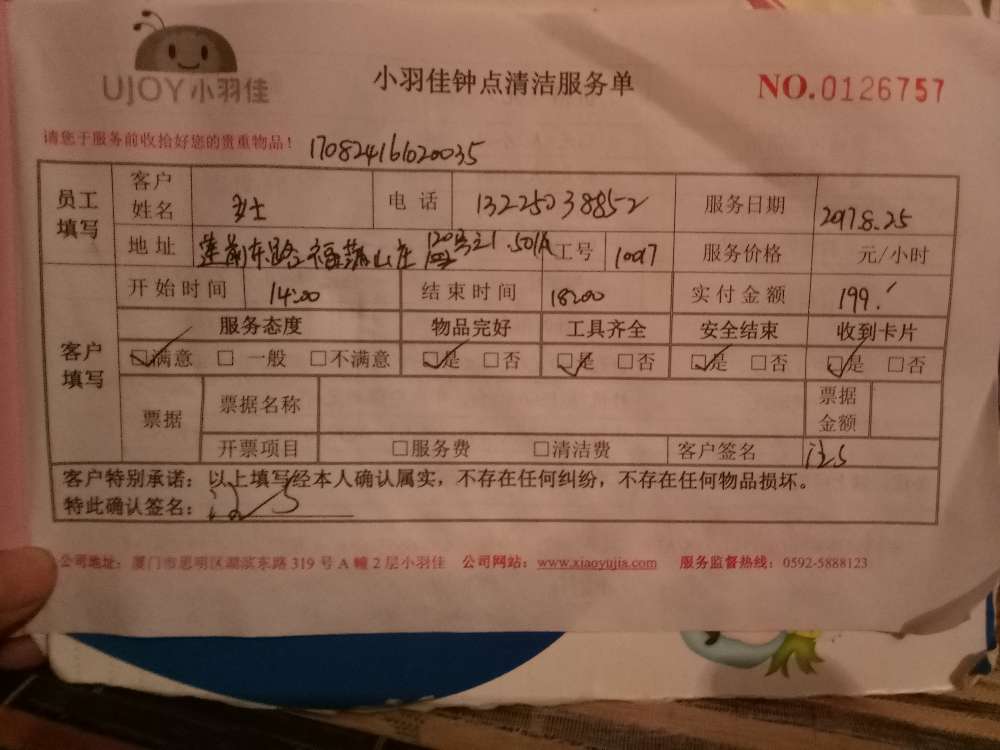 UJOY小羽佳
小羽佳钟点清洁服务单
NO.0126757
请您于服务前收拾好您的贵重物品！
170824161020035
员工填写 客户姓名 女士 电话 13225038852 服务日期 2017.8.25
地址 莲前东路 福满山庄 120号21.501A 工号 10017 服务价格 元/小时
客户填写 开始时间 14:00 结束时间 18:00 实付金额 199.
服务态度 物品完好 工具齐全 安全结束 收到卡片
☑满意 □一般 □不满意 ☑是 □否 ☑是 □否 ☑是 □否 ☑是 □否
票据 票据名称 票据金额
开票项目 □服务费 □清洁费 客户签名
客户特别承诺：以上填写经本人确认属实，不存在任何纠纷，不存在任何物品损坏。
特此确认签名：
公司地址：厦门市思明区湖滨东路 319 号 A 幢 2 层小羽佳 公司网站：www.xiaoyujia.com 服务监督热线：0592-5888123